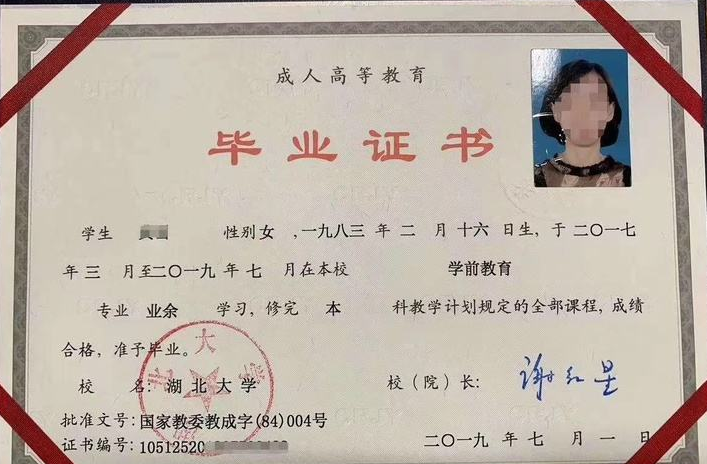 成人高等教育
毕业证书
学生 性别 女 ,一九八三 年 二 月 十六 日生, 于 二〇一七
年 三 月至 二〇一九 年 七 月在本校 学前教育
专业 业余 学习, 修完 本 科教学计划规定的全部课程, 成绩
合格, 准予毕业。
校 名: 湖北大学 校(院)长: 谢红星
批准文号: 国家教委教成字(84)004号
证书编号: 10512520
二〇一九 年 七 月 一 日